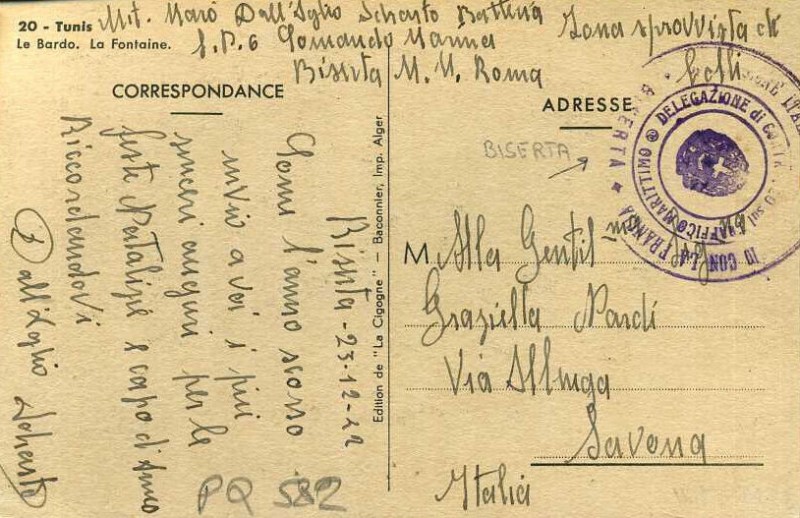 20 - Tunis
Le Bardo. La Fontaine.
Mit. Marò Dall'Aglio Schasto Batteria
S.P.6 Comando Marina
Biserta M.M. Roma
Zona sprovvista di
bolli
CORRESPONDANCE
ADRESSE
BISERTA
BISERTA
DELEGAZIONE di CONTR
sul TRAFFICO MARITTIMO
IO CON LA FRANCIA
Biserta - 23-12-42
Come l'anno scorso
invio a voi i più
sinceri auguri per le
feste Natalizie e capo d'Anno
Riccordandovi
Dall'Aglio
Edition de "La Cigogne" - Baconnier, Imp. Alger
M Alla Gentil ma Sig na
Graziella Nardi
Via Assunga
Savona
Italia
PQ 582